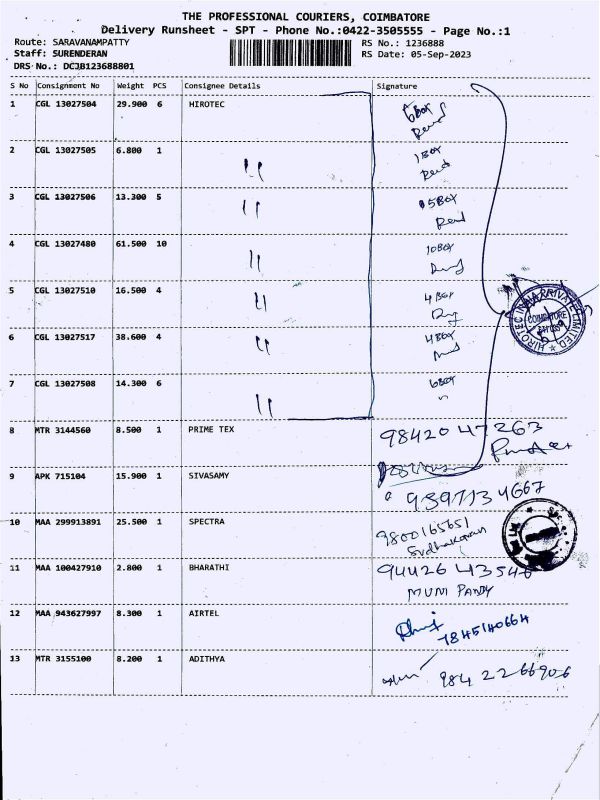 THE PROFESSIONAL COURIERS, COIMBATORE
Delivery Runsheet - SPT - Phone No.:0422-3505555 - Page No.:1
Route: SARAVANAMPATTY RS No.: 1236888
Staff: SURENDERAN RS Date: 05-Sep-2023
DRS No.: DCJB123688801
S No Consignment No Weight PCS Consignee Details Signature
1 CGL 13027504 29.900 6 HIROTEC 6 BOX
2 CGL 13027505 6.800 1 " 1 BOX
3 CGL 13027506 13.300 5 " 5 BOX
4 CGL 13027480 61.500 10 " 10 BOX
5 CGL 13027510 16.500 4 " 4 BOX
6 CGL 13027517 38.600 4 " 4 BOX
7 CGL 13027508 14.300 6 " 6 BOX
HIROTEC INDIA PRIVATE LIMITED
COIMBATORE
8 MTR 3144560 8.500 1 PRIME TEX 98420 47263
9 APK 715104 15.900 1 SIVASAMY
10 MAA 299913891 25.500 1 SPECTRA 9800165651
Sudhakaran
11 MAA 100427910 2.800 1 BHARATHI 94426 43546
MUNI PANDY
12 MAA 943627997 8.300 1 AIRTEL 7845140664
13 MTR 3155100 8.200 1 ADITHYA 984 22 66906